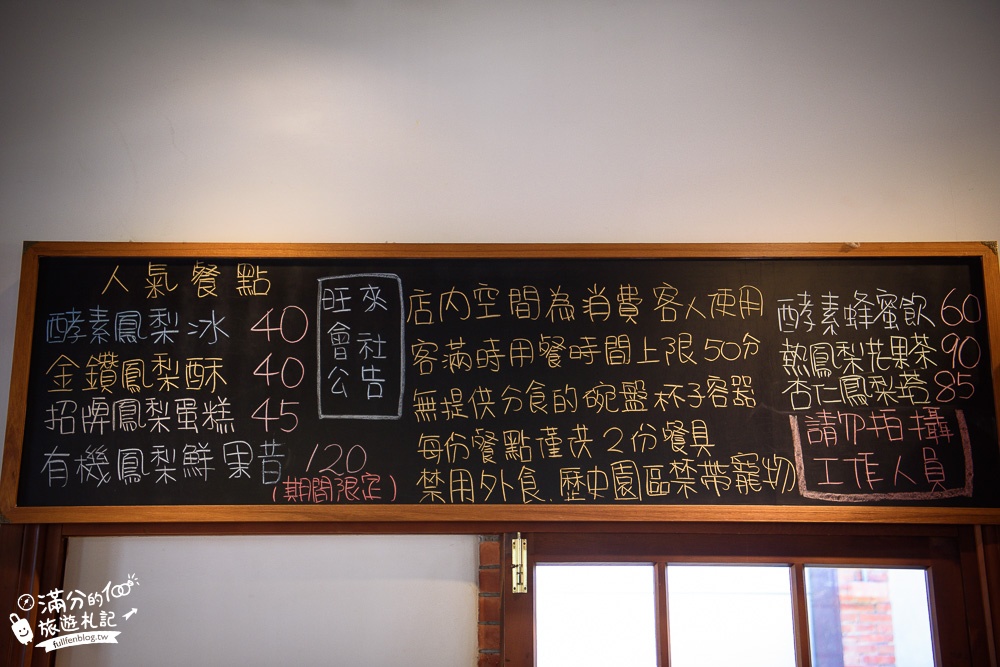 人氣餐點
酵素鳳梨冰 40
金鑽鳳梨酥 40
招牌鳳梨蛋糕 45
有機鳳梨鮮果昔 120
(期間限定)
旺來
會社
公告
店內空間為消費客人使用
客滿時用餐時間上限50分
無提供分食的碗盤杯子容器
每份餐點僅供2份餐具
禁用外食.歷史園區禁帶寵物
酵素蜂蜜飲 60
熱鳳梨花果茶 90
杏仁鳳梨塔 85
請勿拍攝
工作人員
滿分的100
旅遊札記
fullfenblog.tw